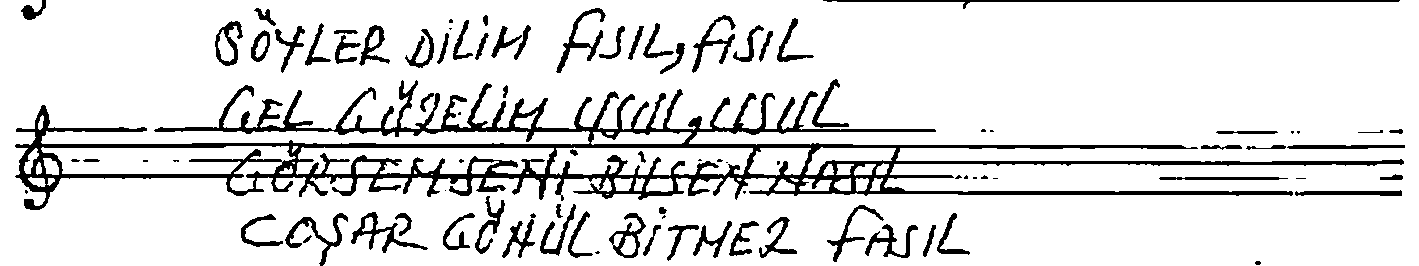 SÖYLER DİLİM FISIL, FISIL
GEL GÜZELİM USUL, USUL
GÖRSEM SENİ BİLSEN NASIL
COŞAR GÖNÜL BİTMEZ FASIL